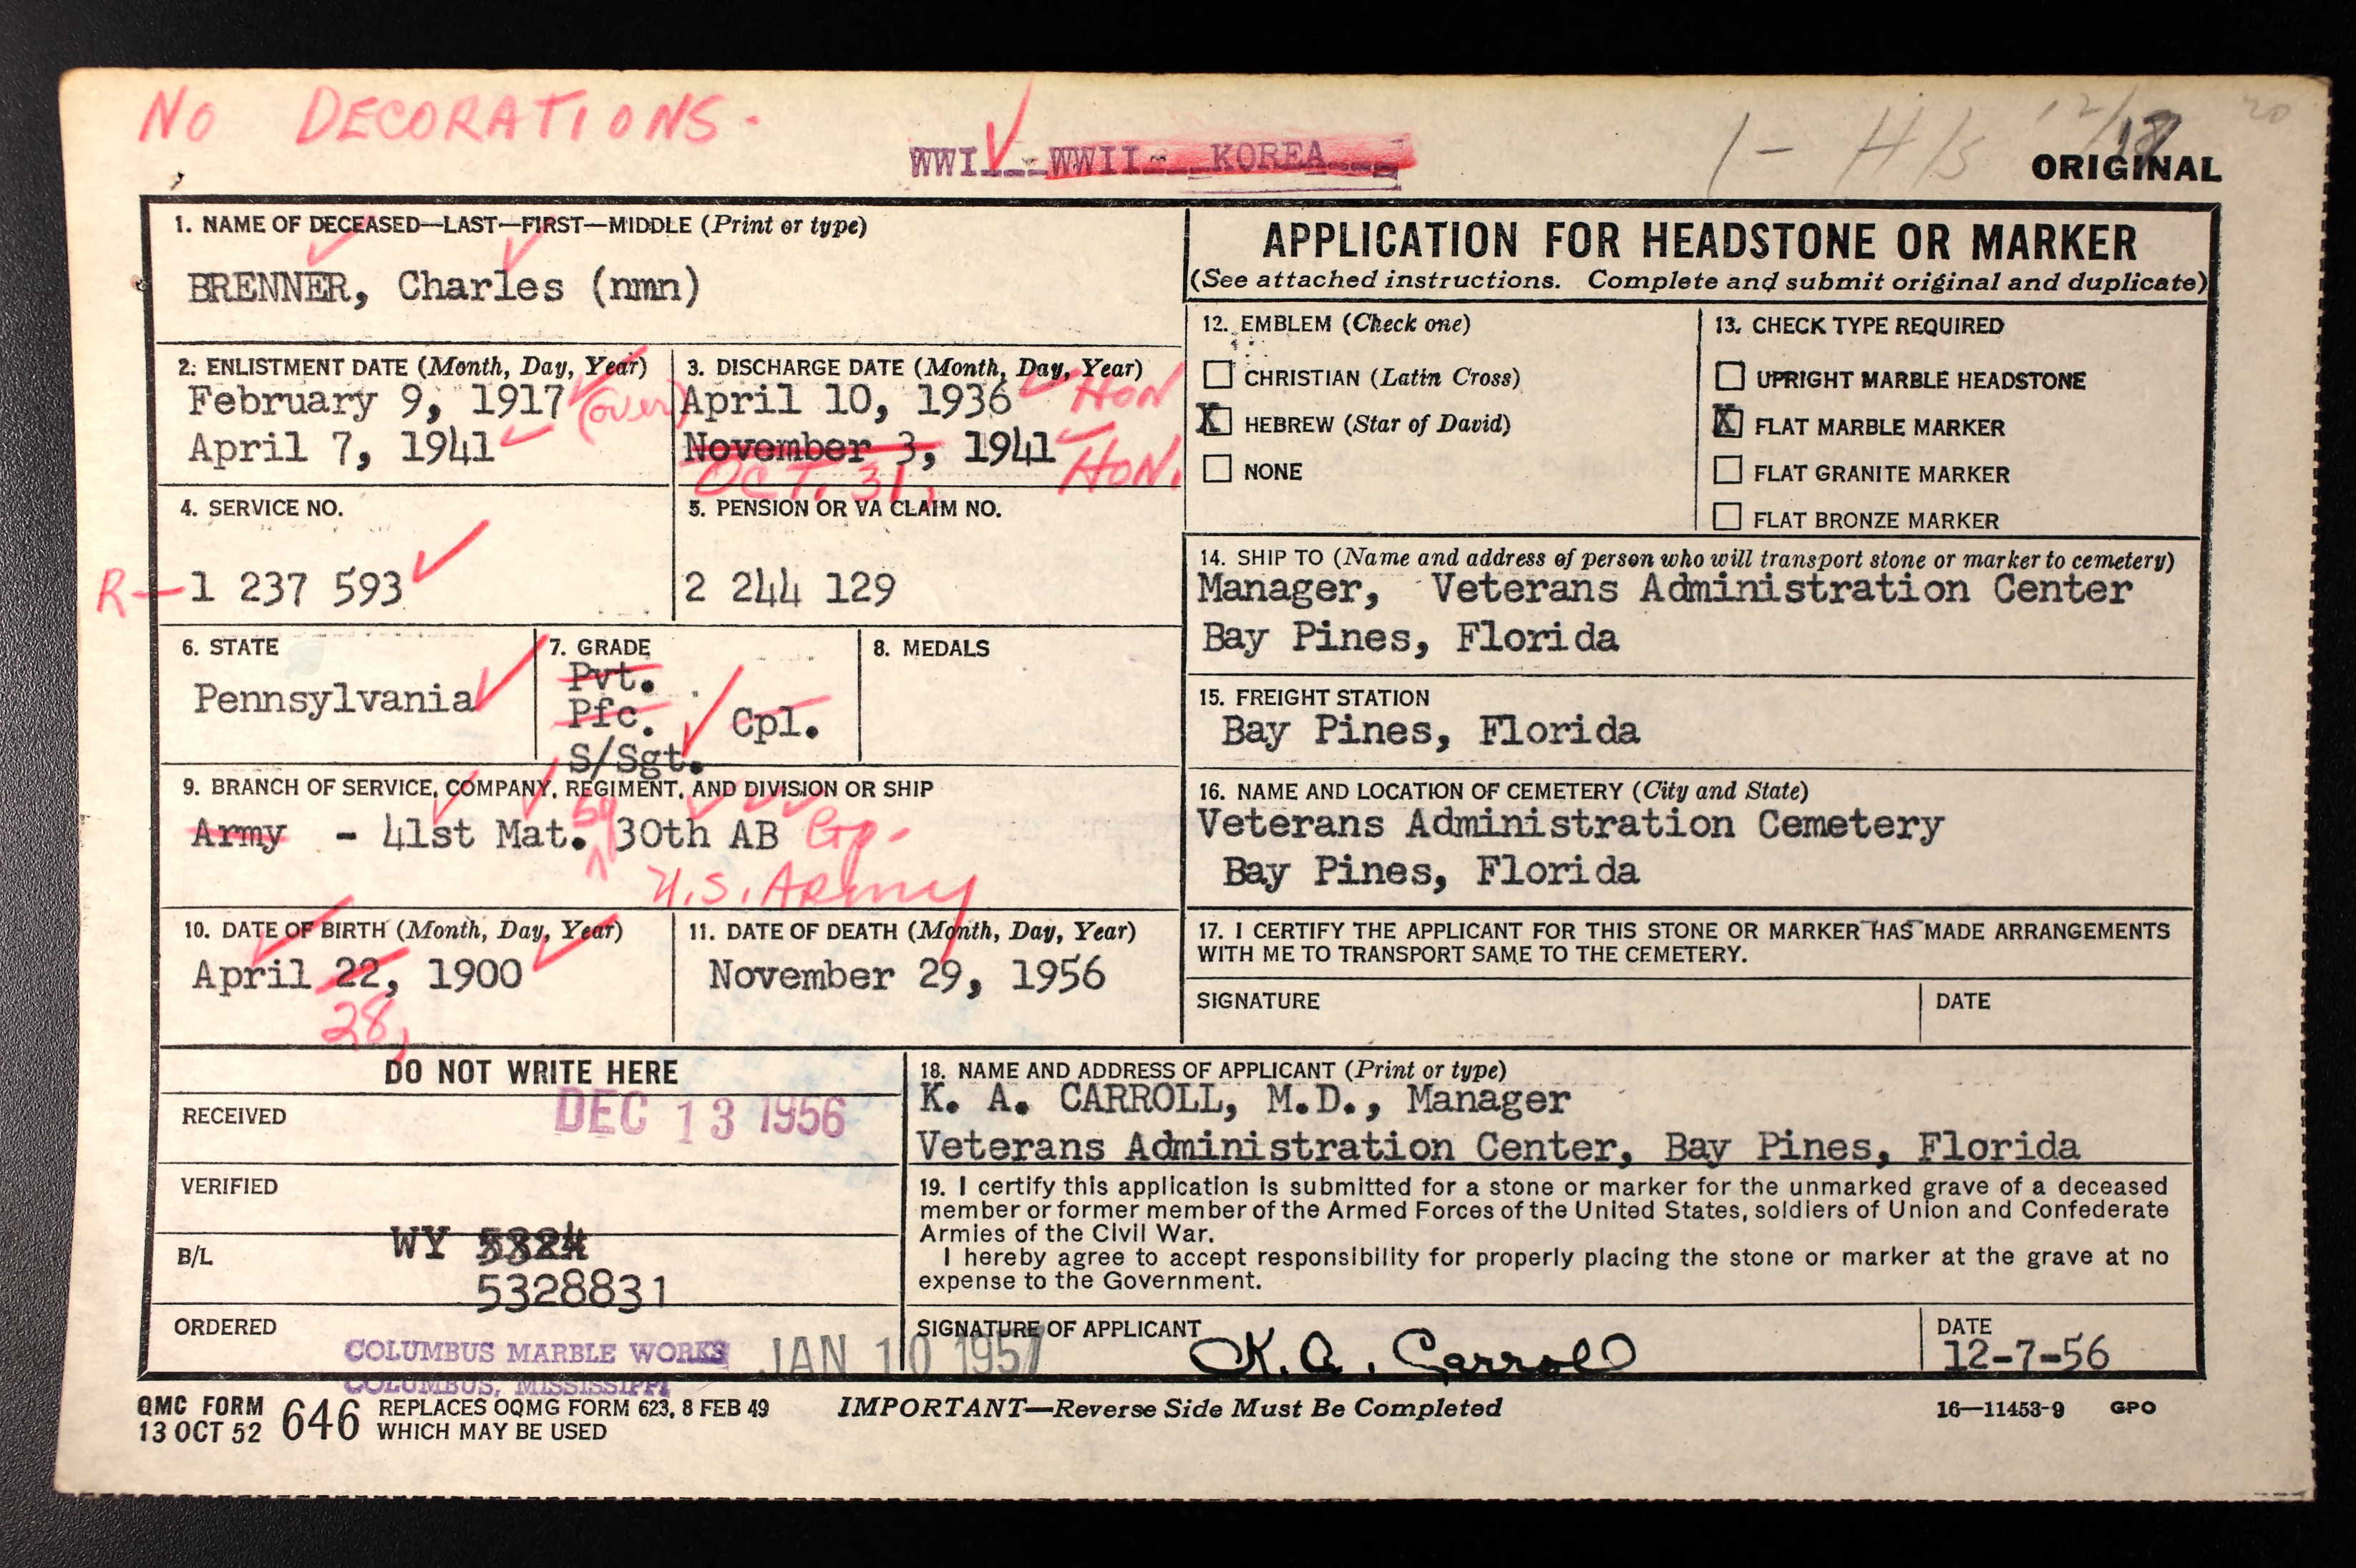 NO DECORATIONS.
WWI WWII KOREA
1 - H/S
ORIGINAL
1. NAME OF DECEASED—LAST—FIRST—MIDDLE (Print or type)
BRENNER, Charles (nmn)
APPLICATION FOR HEADSTONE OR MARKER
(See attached instructions. Complete and submit original and duplicate)
2. ENLISTMENT DATE (Month, Day, Year)
February 9, 1917 (over)
April 7, 1941
3. DISCHARGE DATE (Month, Day, Year)
April 10, 1936 HON
November 3, 1941 HON.
OCT. 31,
12. EMBLEM (Check one)
CHRISTIAN (Latin Cross)
X HEBREW (Star of David)
NONE
13. CHECK TYPE REQUIRED
UPRIGHT MARBLE HEADSTONE
X FLAT MARBLE MARKER
FLAT GRANITE MARKER
FLAT BRONZE MARKER
4. SERVICE NO.
R-1 237 593
5. PENSION OR VA CLAIM NO.
2 244 129
14. SHIP TO (Name and address of person who will transport stone or marker to cemetery)
Manager, Veterans Administration Center
Bay Pines, Florida
6. STATE
Pennsylvania
7. GRADE
Pvt.
Pfc. Cpl.
S/Sgt.
8. MEDALS
15. FREIGHT STATION
Bay Pines, Florida
9. BRANCH OF SERVICE, COMPANY, REGIMENT, AND DIVISION OR SHIP
Army - 41st Mat. Sq 30th AB Gp.
U.S. ARMY
16. NAME AND LOCATION OF CEMETERY (City and State)
Veterans Administration Cemetery
Bay Pines, Florida
10. DATE OF BIRTH (Month, Day, Year)
April 22, 1900
28,
11. DATE OF DEATH (Month, Day, Year)
November 29, 1956
17. I CERTIFY THE APPLICANT FOR THIS STONE OR MARKER HAS MADE ARRANGEMENTS
WITH ME TO TRANSPORT SAME TO THE CEMETERY.
SIGNATURE
DATE
DO NOT WRITE HERE
RECEIVED DEC 13 1956
VERIFIED
B/L WY
5328831
ORDERED
COLUMBUS MARBLE WORKS JAN 10 1957
COLUMBUS, MISSISSIPPI
18. NAME AND ADDRESS OF APPLICANT (Print or type)
K. A. CARROLL, M.D., Manager
Veterans Administration Center, Bay Pines, Florida
19. I certify this application is submitted for a stone or marker for the unmarked grave of a deceased
member or former member of the Armed Forces of the United States, soldiers of Union and Confederate
Armies of the Civil War.
I hereby agree to accept responsibility for properly placing the stone or marker at the grave at no
expense to the Government.
SIGNATURE OF APPLICANT
K. A. Carroll
DATE
12-7-56
QMC FORM
13 OCT 52 646 REPLACES OQMG FORM 623, 8 FEB 49
WHICH MAY BE USED
IMPORTANT—Reverse Side Must Be Completed
16—11453-9 GPO